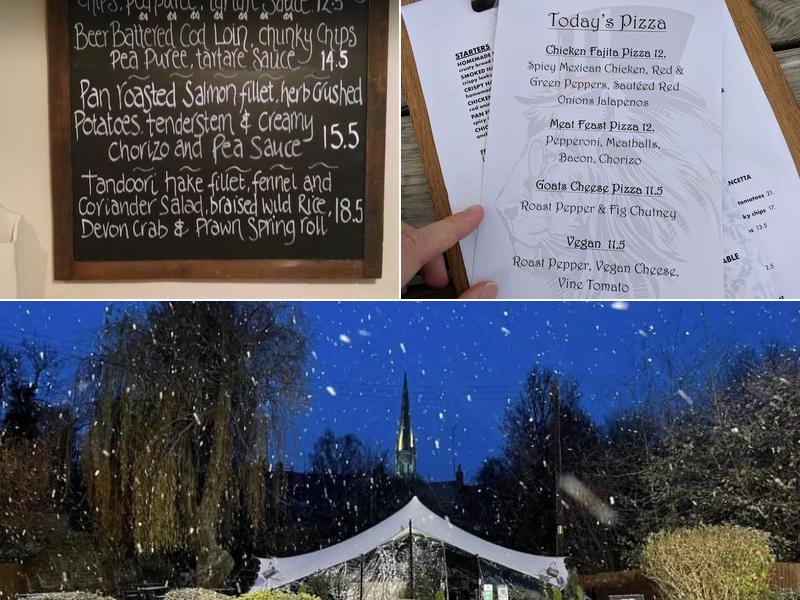 Chips, Pea Puree, tartare, Sauce 12.5
Beer Battered Cod Loin, chunky Chips
Pea Puree, tartare Sauce 14.5
Pan roasted Salmon fillet, herb crushed
Potatoes, tenderstem & creamy
chorizo and Pea Sauce 15.5
Tandoori hake fillet, fennel and
Coriander Salad, braised wild Rice,
Devon Crab & Prawn Spring roll 18.5
STARTERS
HOMEMADE
crusty bread
SMOKED
crispy
CRISPY
homemad
CHICKEN
red onio
PAN
spicy
CHIC
Today's Pizza
Chicken Fajita Pizza 12.
Spicy Mexican Chicken, Red &
Green Peppers, Sautéed Red
Onions Jalapenos
Meat Feast Pizza 12.
Pepperoni, Meatballs,
Bacon, Chorizo
Goats Cheese Pizza 11.5
Roast Pepper & Fig Chutney
Vegan 11.5
Roast Pepper, Vegan Cheese,
Vine Tomato
NCETTA
tomatoes 21.
ky chips 17.
13.5
ABLE
2.5